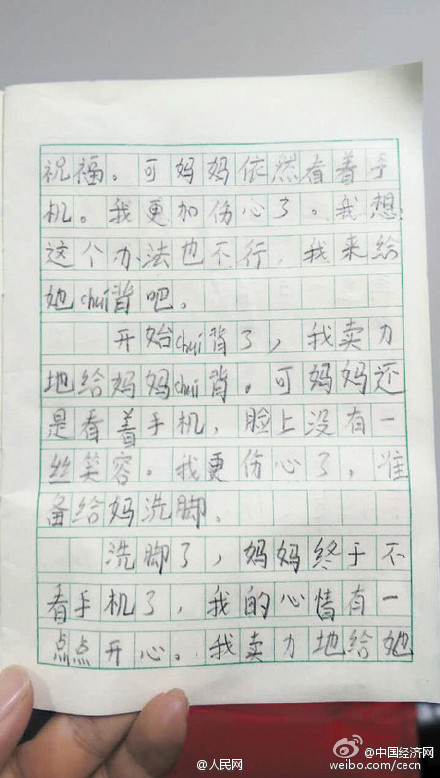 祝福。可妈妈依然看着手
机。我更加伤心了。我想:
这个办法也不行,我来给
她chuí背吧。
开始chuí背了,我卖力
地给妈妈chuí背。可妈妈还
是看着手机,脸上没有一
丝笑容。我更伤心了,准
备给妈洗脚。
洗脚了,妈妈终于不
看手机了,我的心情有一
点点开心。我卖力地给她
@人民网
@中国经济网
weibo.com/cecn